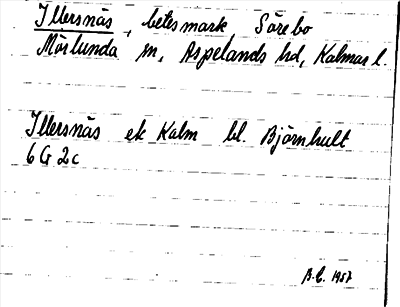 Illersnäs, betesmark, Sörebo
Mörlunda sn, Aspelands hd, Kalmar l.
Illersnäs ek Kalm bl. Björnhult
6 G 2c
B.E. 1957